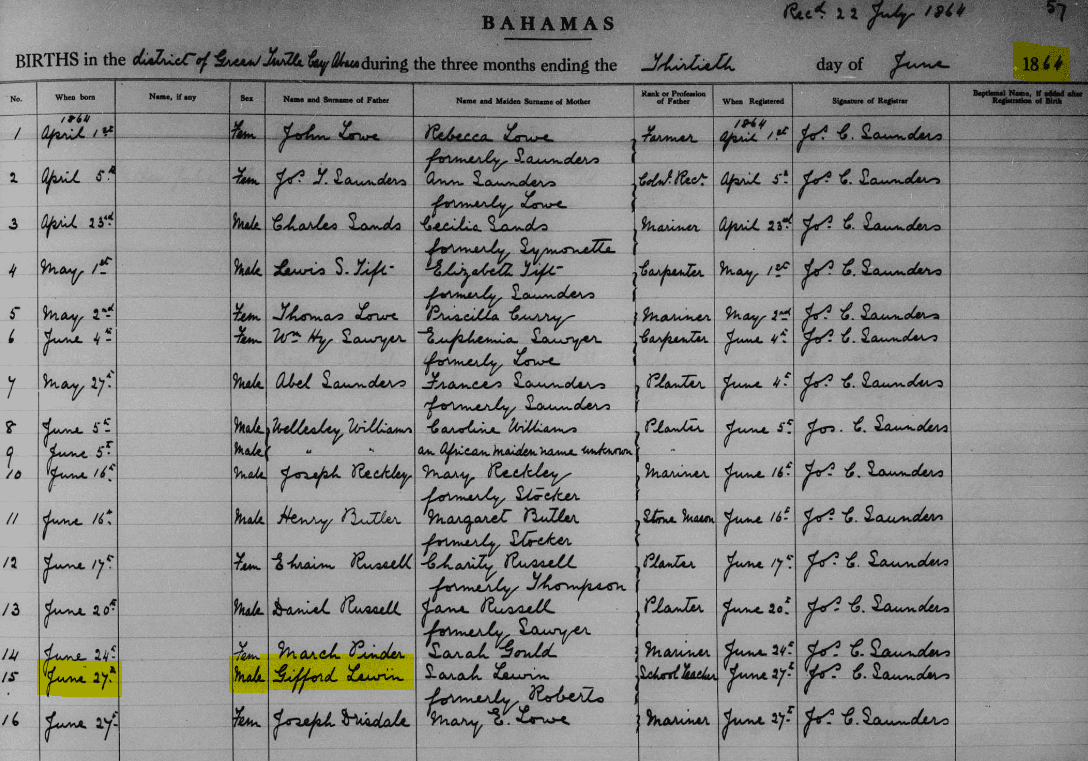 Recd. 22 July 1864 57
BAHAMAS
BIRTHS in the district of Green Turtle Cay Abaco during the three months ending the Thirtieth day of June 1864
No. When born Name, if any Sex Name and Surname of Father Name and Maiden Surname of Mother Rank or Profession of Father When Registered Signature of Registrar Baptismal Name, if added after Registration of Birth
1864 1864
1 April 1st Fem John Lowe Rebecca Lowe Farmer April 1st Jos. C. Saunders
formerly Saunders
2 April 5th Fem Jos. T. Saunders Ann Saunders Colnl. Recr. April 5th Jos. C. Saunders
formerly Lowe
3 April 23rd Male Charles Sands Cecilia Sands Mariner April 23rd Jos. C. Saunders
formerly Symonette
4 May 1st Male Lewis S. Tift Elizabeth Tift Carpenter May 1st Jos. C. Saunders
formerly Saunders
5 May 2nd Fem Thomas Lowe Priscilla Curry Mariner May 2nd Jos. C. Saunders
6 June 4th Fem Wm Hy Sawyer Euphemia Sawyer Carpenter June 4th Jos. C. Saunders
formerly Lowe
7 May 27th Male Abel Saunders Frances Saunders Planter June 4th Jos. C. Saunders
formerly Saunders
8 June 5th Male Wellesley Williams Caroline Williams Planter June 5th Jos. C. Saunders
9 June 5th Male " " an African maiden name unknown "
10 June 16th Male Joseph Reckley Mary Reckley Mariner June 16th Jos. C. Saunders
formerly Stocker
11 June 16th Male Henry Butler Margaret Butler Stone Mason June 16th Jos. C. Saunders
formerly Stocker
12 June 17th Fem Ehraim Russell Charity Russell Planter June 17th Jos. C. Saunders
formerly Thompson
13 June 20th Male Daniel Russell Jane Russell Planter June 20th Jos. C. Saunders
formerly Sawyer
14 June 24th Fem March Pinder Sarah Gould Mariner June 24th Jos. C. Saunders
15 June 27th Male Gifford Lewin Sarah Lewin School Teacher June 27th Jos. C. Saunders
formerly Roberts
16 June 27th Fem Joseph Drisdale Mary E. Lowe Mariner June 27th Jos. C. Saunders